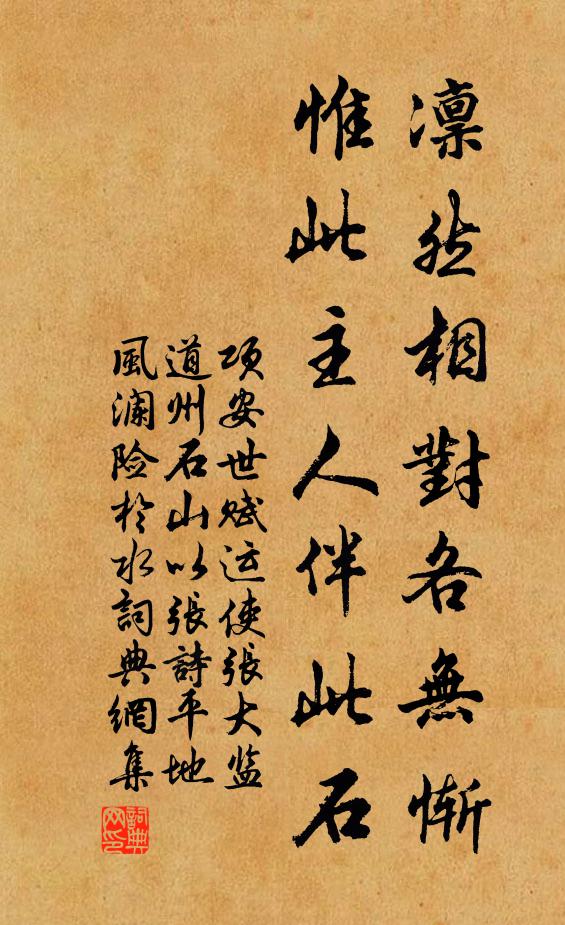 凛然相對各無慚
惟此主人伴此石
项安世赋运使張大监
道州石山以張詩平地
風澜险於水詞典網集
詞典网印